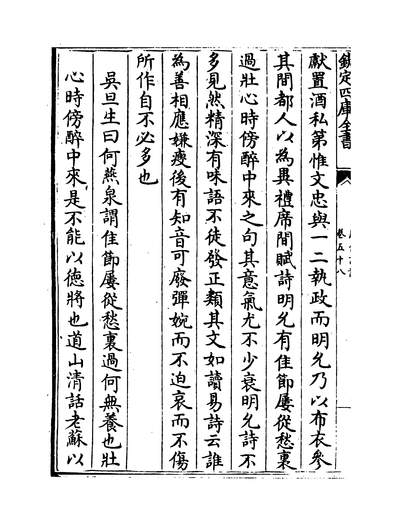 欽定四庫全書
卷五十八
獻置酒私第惟文忠與一二執政而明允乃以布衣參
其間都人以為異禮席間賦詩明允有佳節屢從愁裏
過壯心時傍醉中來之句其意氣尤不少衰明允詩不
多見然精深有味語不徒發正類其文如讀易詩云誰
為善相應嫌瘦後有知音可廢彈婉而不迫哀而不傷
所作自不必多也
吳旦生曰何燕泉謂佳節屢從愁裏過何無養也壯
心時傍醉中來是不能以德將也道山清話老蘇以